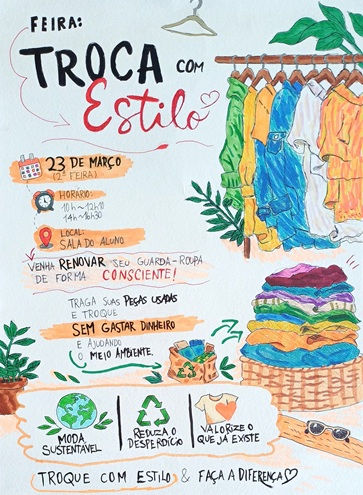 FEIRA:
TROCA COM
Estilo
23 DE MARÇO
(2ª FEIRA)
HORÁRIO:
10h~12h10
14h~16h30
LOCAL:
SALA DO ALUNO
VENHA RENOVAR SEU GUARDA-ROUPA
DE FORMA CONSCIENTE!
TRAGA SUAS PEÇAS USADAS
E TROQUE
SEM GASTAR DINHEIRO
E AJUDANDO
O MEIO AMBIENTE.
MODA
SUSTENTÁVEL
REDUZA O
DESPERDÍCIO
VALORIZE O
QUE JÁ EXISTE
TROQUE COM ESTILO & FAÇA A DIFERENÇA